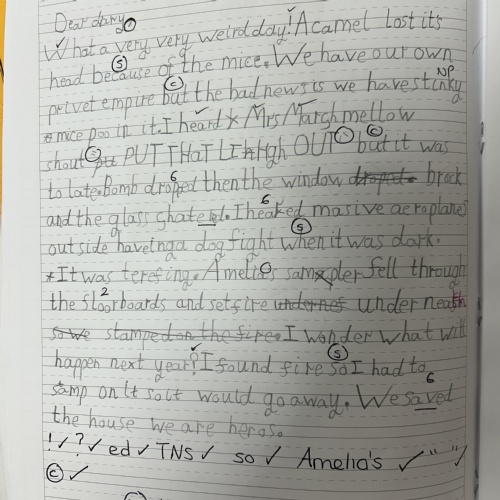 Dear dairy,
What a very very weird day! A camel lost it's
head because of the mice. We have our own
privet empire but the bad news is we have stinky
mice poo in it. I heard Mrs Marshmellow
shout PUT THaT LIgHh OUT but it was
to late. Bomb droped then the window droped. brock
and the glass shatered. I heaked masive aeroplanes
outside haveing a dog fight when it was dark.
*It was terefing. Amelia's sampler fell through
the floorboards and set fire undernef under neath
so we stamped on the fire. I wonder what will
happen next year? I found fire so I had to
samp on it so it would go away. We saved
the house we are heros.
! ✓ ? ✓ ed ✓ TNs ✓ so ✓ Amelia's ✓ " " ✓
c ✓